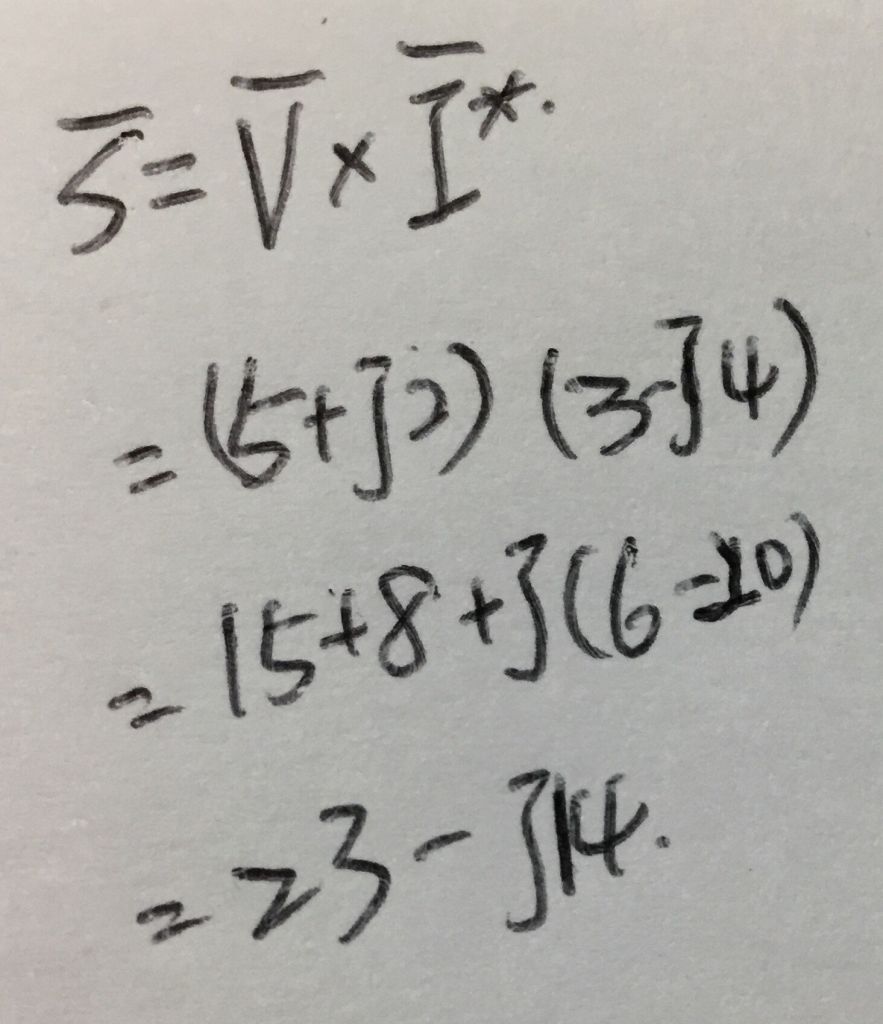 S̅ = V̅ × I̅*.
= (5+j2) (3-j4)
= 15+8+j(6-20)
= 23 - j14.